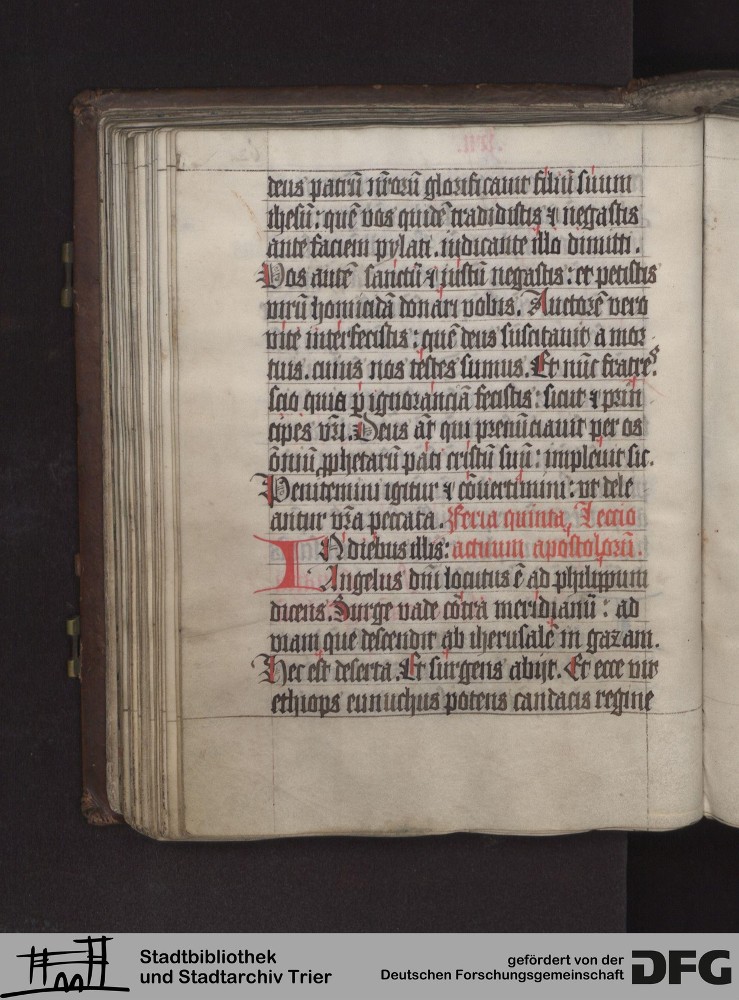 deus patrū nr̄orū glorificauit filiū suum
ihesū: quē vos quidē tradidistis ⁊ negastis
ante faciem pylati. iudicante illo dimitti.
Vos autē sanctū ⁊ iustū negastis: et petistis
virū homicidā donari vobis. Auctorē vero
vite interfecistis: quē deus suscitauit a mor
tuis. cuius nos testes sumus. Et nūc fratres.
scio quia ꝑ ignoranciā fecistis: sicut ⁊ prin
cipes vr̄i. Deus aūt qui prenūciauit per os
ōniū ꝓphetarū pati cristū suū: impleuit sic.
Penitemini igitur ⁊ cōuertimini: vt dele
antur vr̄a peccata. Feria quinta, Leccio
IN diebus illis: actuum apostolorū.
Angelus dn̄i locutus ē ad philippum
dicens. Surge vade cōtra meridianū: ad
viam que descendit ab iherusalē in gazam.
Hec est deserta. Et surgens abijt. Et ecce vir
ethiops eunuchus potens candacis regine
Stadtbibliothek
und Stadtarchiv Trier
gefördert von der
Deutschen Forschungsgemeinschaft
DFG